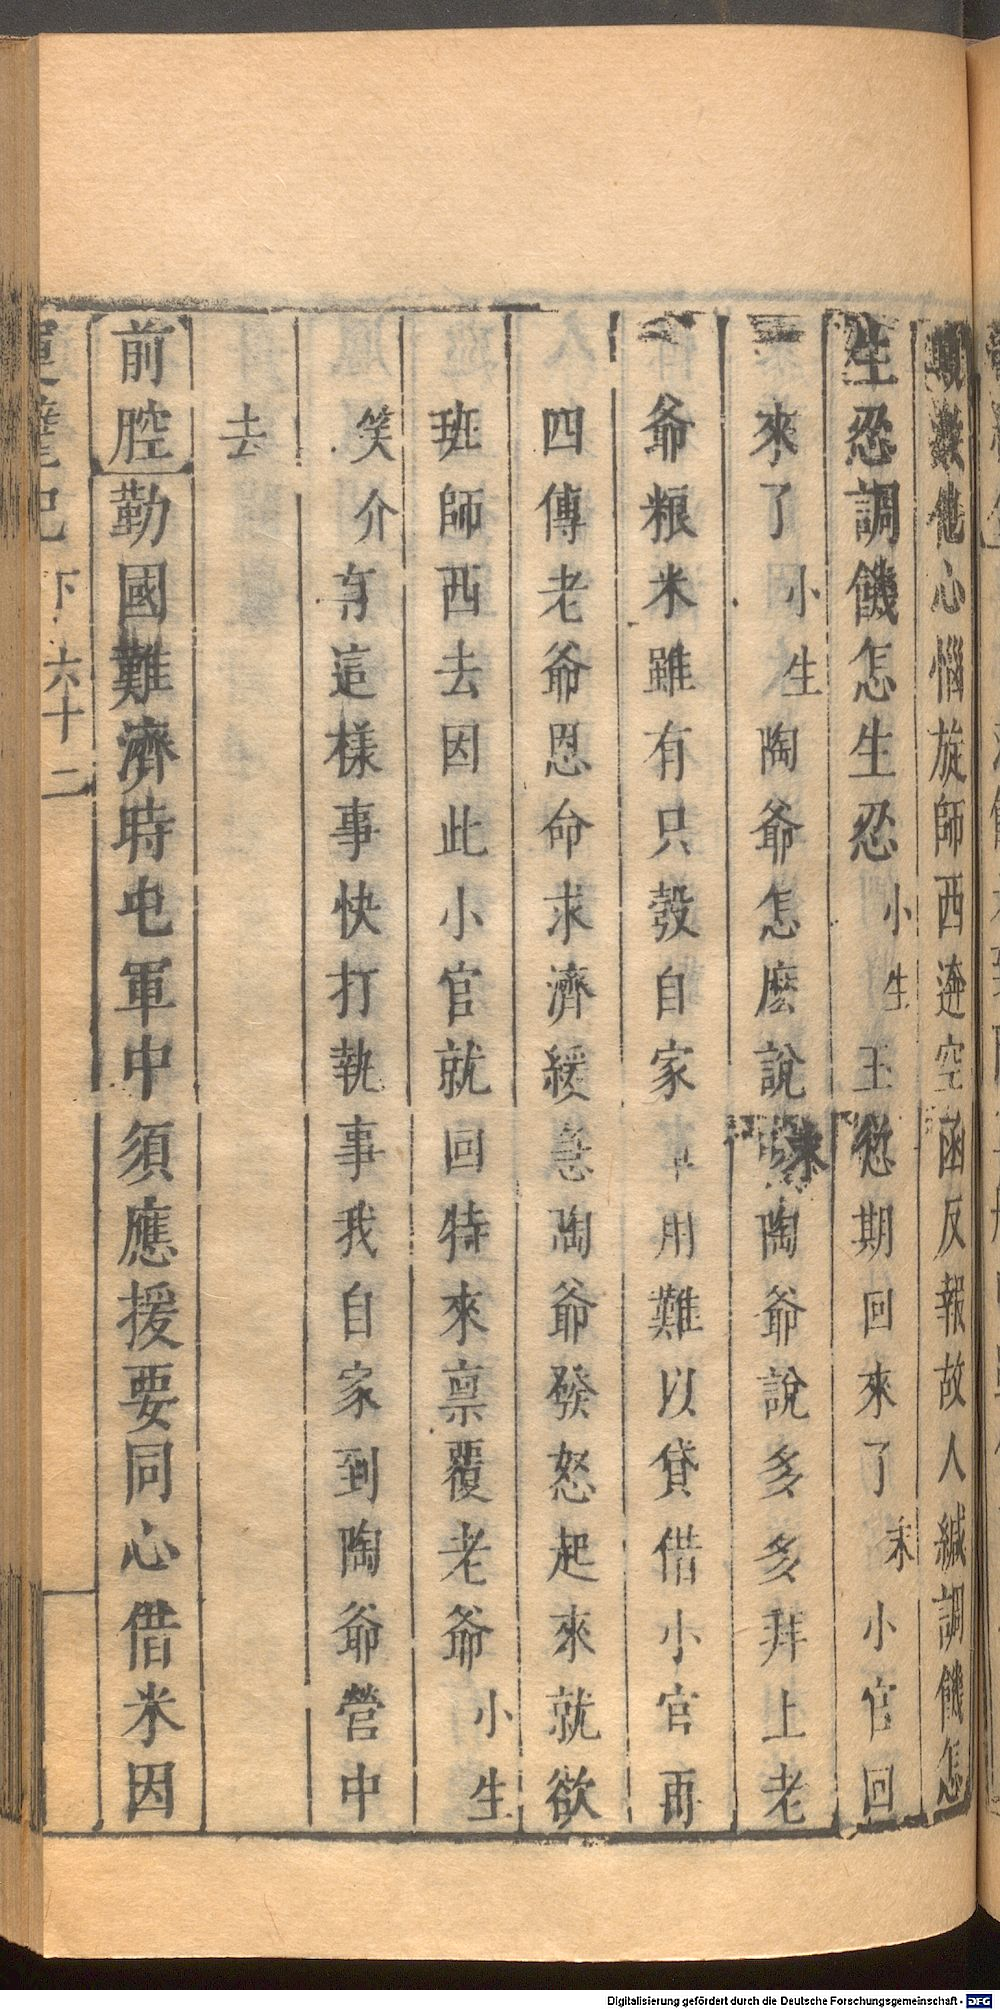 他心惱旋師西遁空函反報故人緘調饑怎
生忍調饑怎生忍小生王從期回來了末小官回
來了小生陶爺怎麽說末陶爺說多多拜上老
爺粮米雖有只彀自家軍用難以貸借小官再
四傳老爺恩命求濟緩急陶爺發怒起來就欲
班師西去因此小官就回特來禀覆老爺小生
笑介有這樣事快打執事我自家到陶爺營中
去
前腔勤國難濟時屯軍中須應援要同心借米因
下 六十二
Digitalisierung gefördert durch die Deutsche Forschungsgemeinschaft - DFG